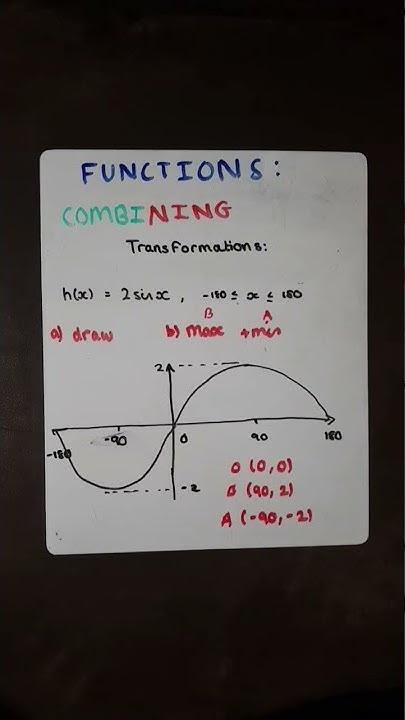 FUNCTIONS:
COMBINING
Transformations:
h(x) = 2sinx, -180 ≤ x ≤ 180
B A
a) draw b) max + min
2
-180 -90 0 90 180
-2
O (0,0)
B (90, 2)
A (-90, -2)